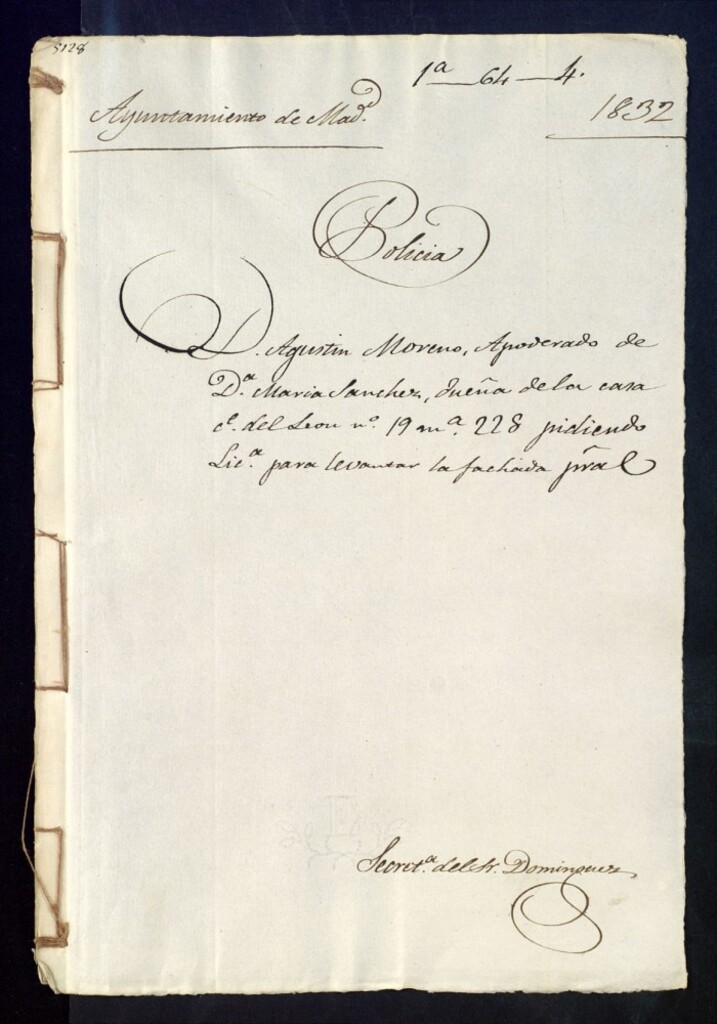 5128
1ª 64 4.
Ayuntamiento de Madᵈ.
1832
Policia
D. Agustin Moreno, Apoderado de
Dª. Maria Sanchez, dueña de la casa
cᵉ. del Leon nº. 19 mª. 228 pidiendo
Licª. para levantar la fachada pral
Secretª. del Sr. Dominguez